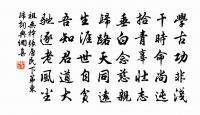 學古功非淺
干時命尚迍
拾青辜壯志
垂白念慈親
歸路天同遠
生涯世自貧
吾知君道大
馳逐老風塵
祖無擇張唐民下第東
歸詞典網書